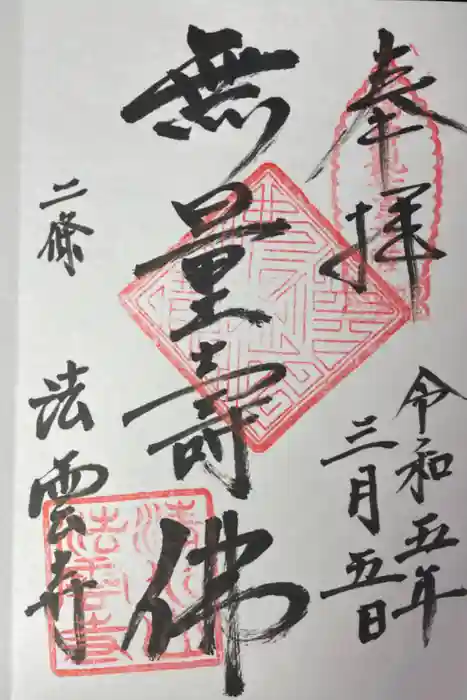 奉拝
令和五年
三月五日
無量寿佛
二條
法雲寺